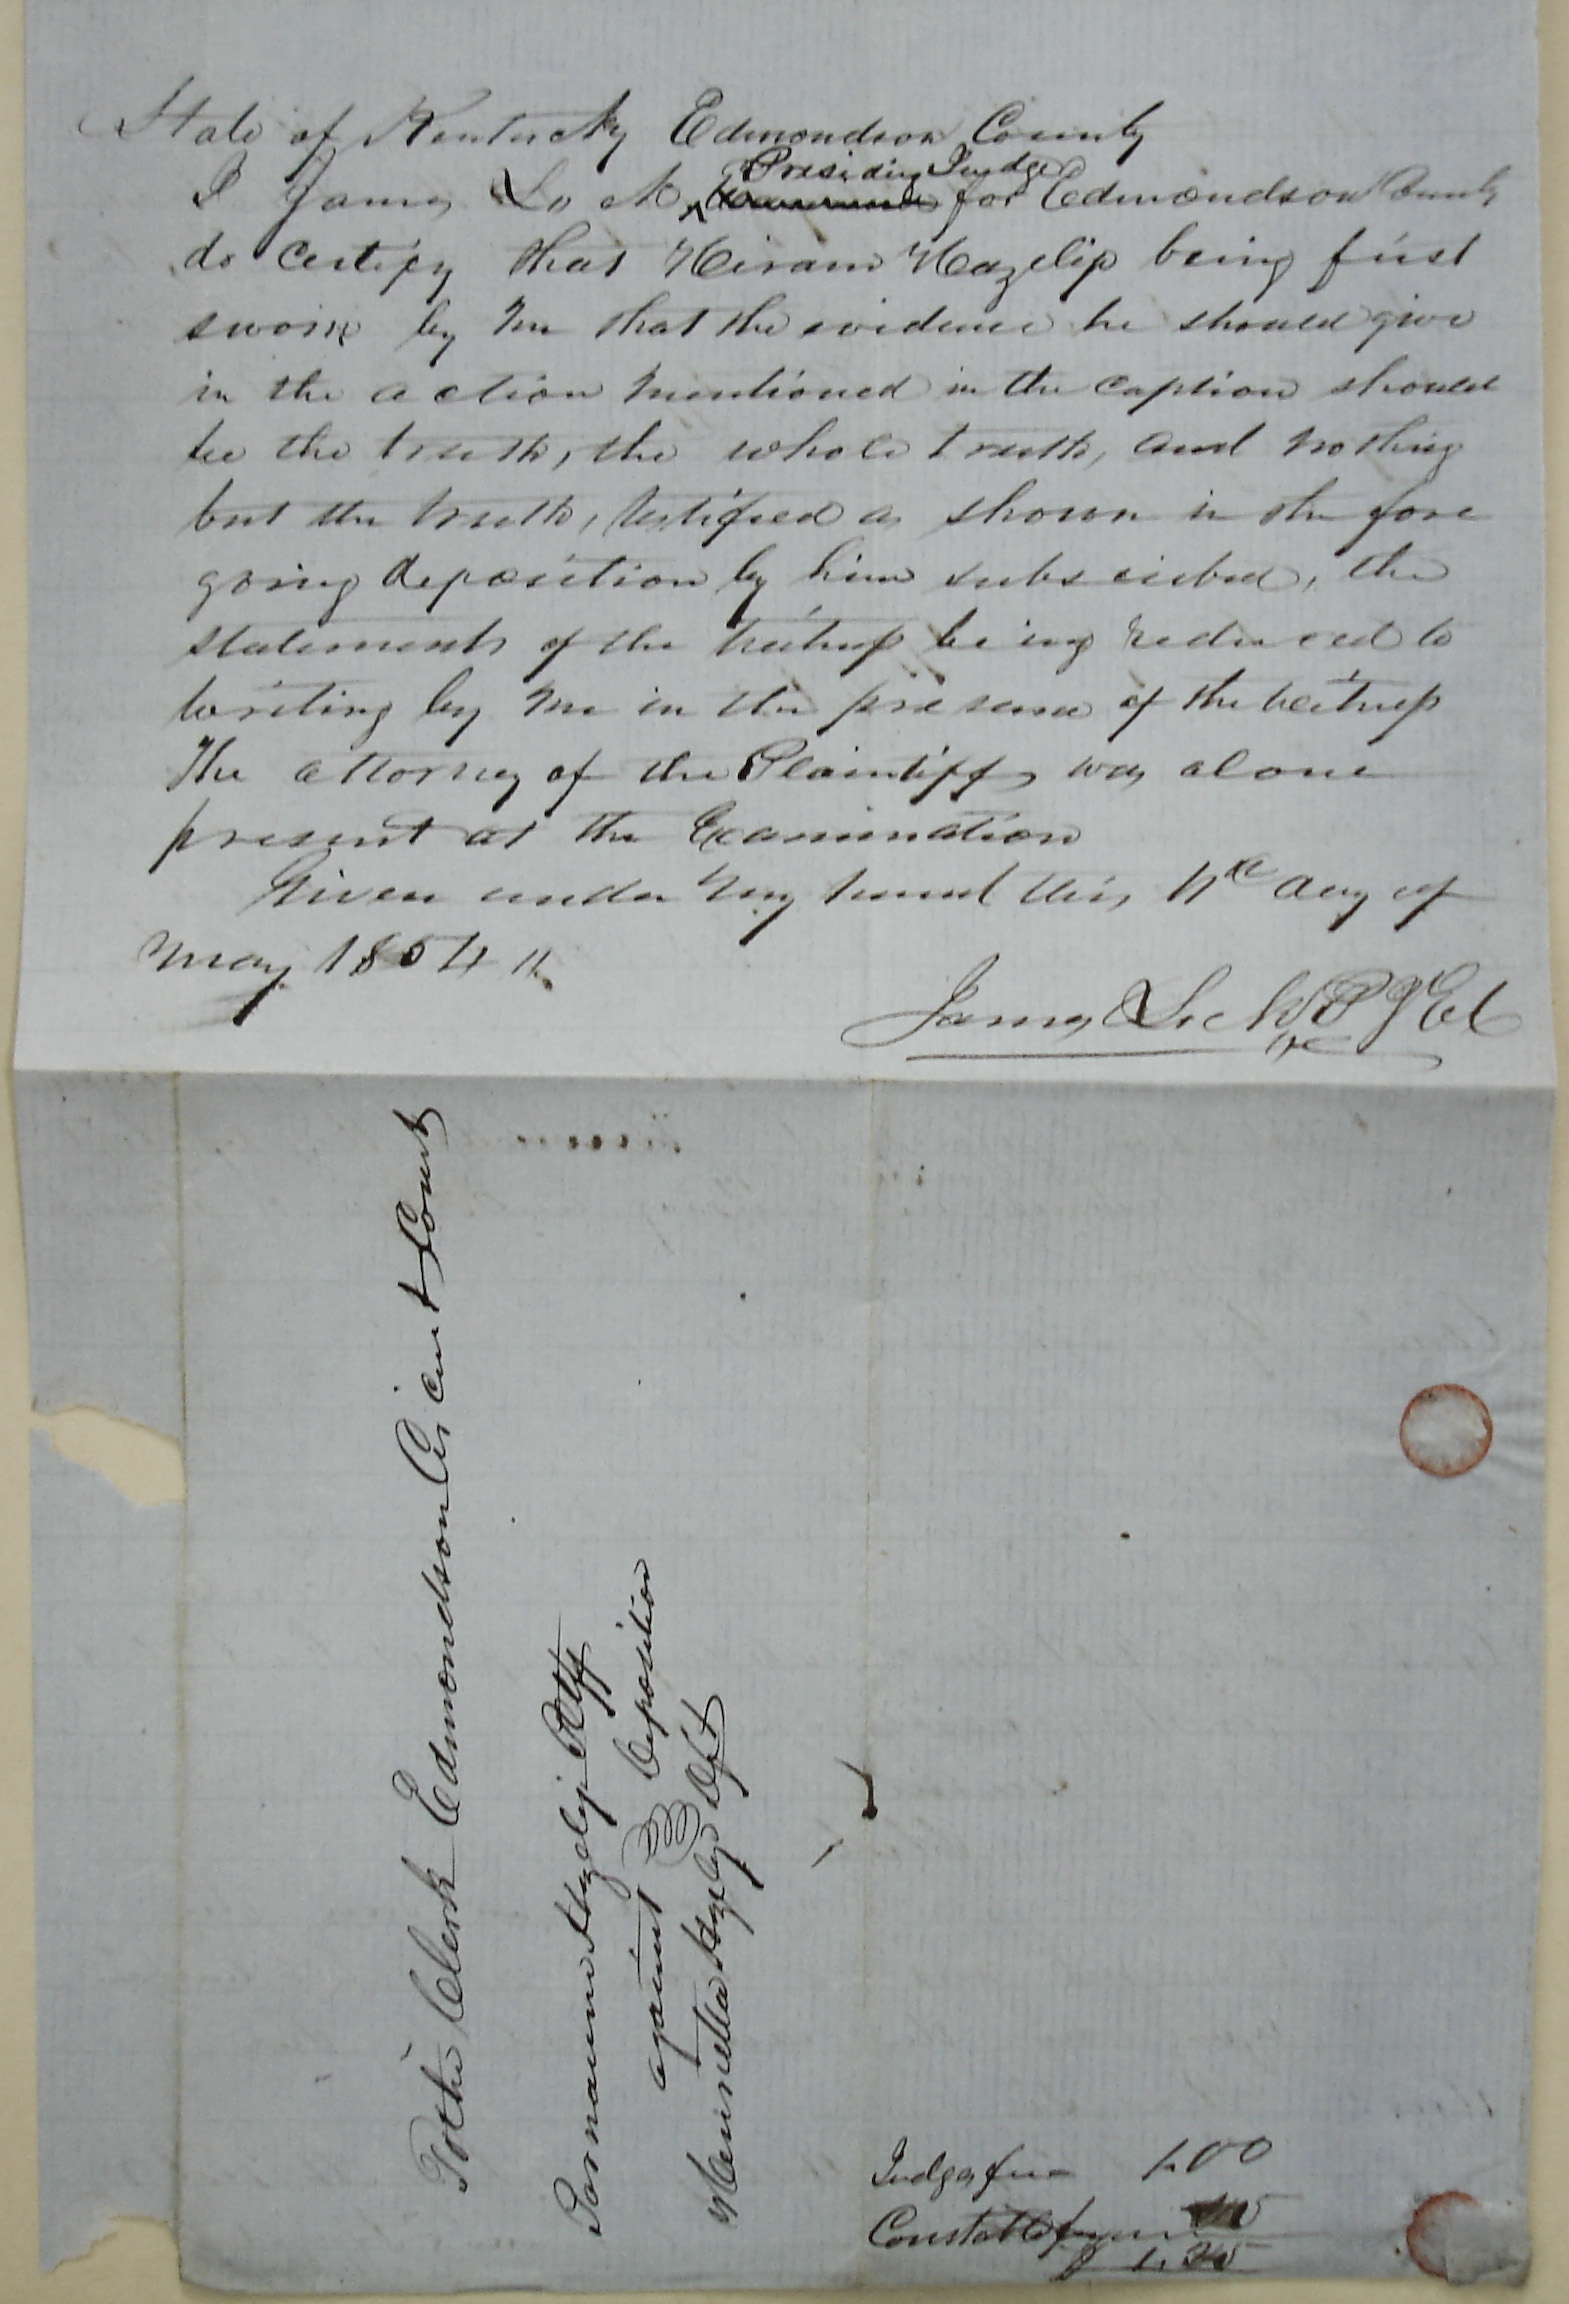 State of Kentucky Edmondson County
I James Lock Presiding Judge for Edmondson County
do certify that Hiram Hazelip being first
sworn by me that the evidence he should give
in the action mentioned in the caption should
be the truth, the whole truth, and nothing
but the truth, testified as shown in the fore
going deposition by him subscribed, the
statements of the witness being reduced to
writing by me in the presence of the witness
The attorney of the Plaintiff was alone
present at the Examination
Given under my hand this day of
May 1854
James Lock P J E C
To the Clerk Edmondson Circuit Court
Hazelip Pltff
against Deposition
Hazelip Deft
Judges fee 1.00
Constable